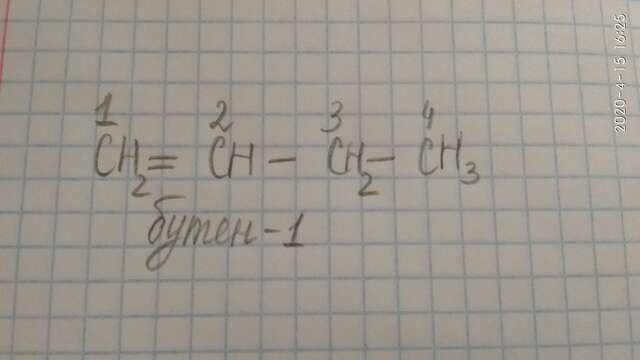 1 2 3 4
CH₂ = CH – CH₂ – CH₃
бутен-1
2020-4-15 16:25